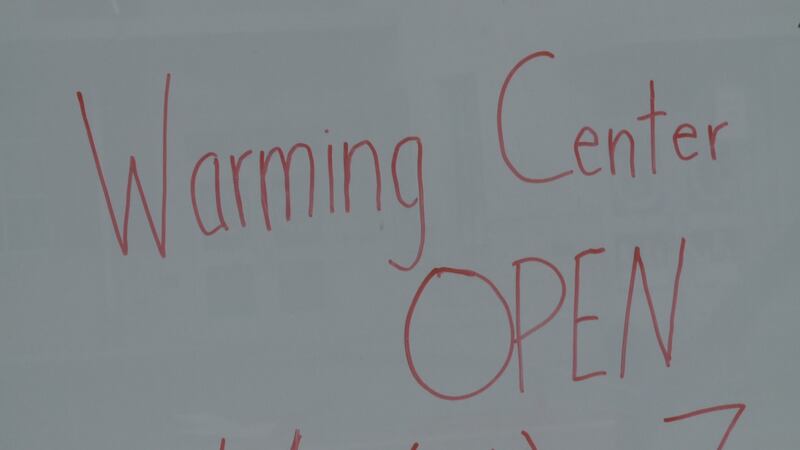 Warming Center
OPEN